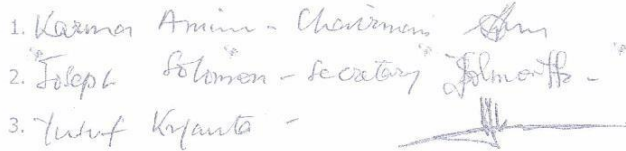 1. Kazmon Aminu - Chairman
2. Joseph Solomon - Secretary
3. Yusuf